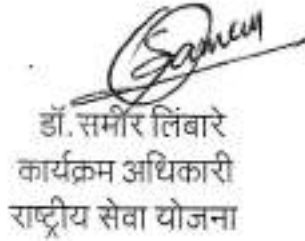 Sameer
डॉ. समीर लिंबारे
कार्यक्रम अधिकारी
राष्ट्रीय सेवा योजना